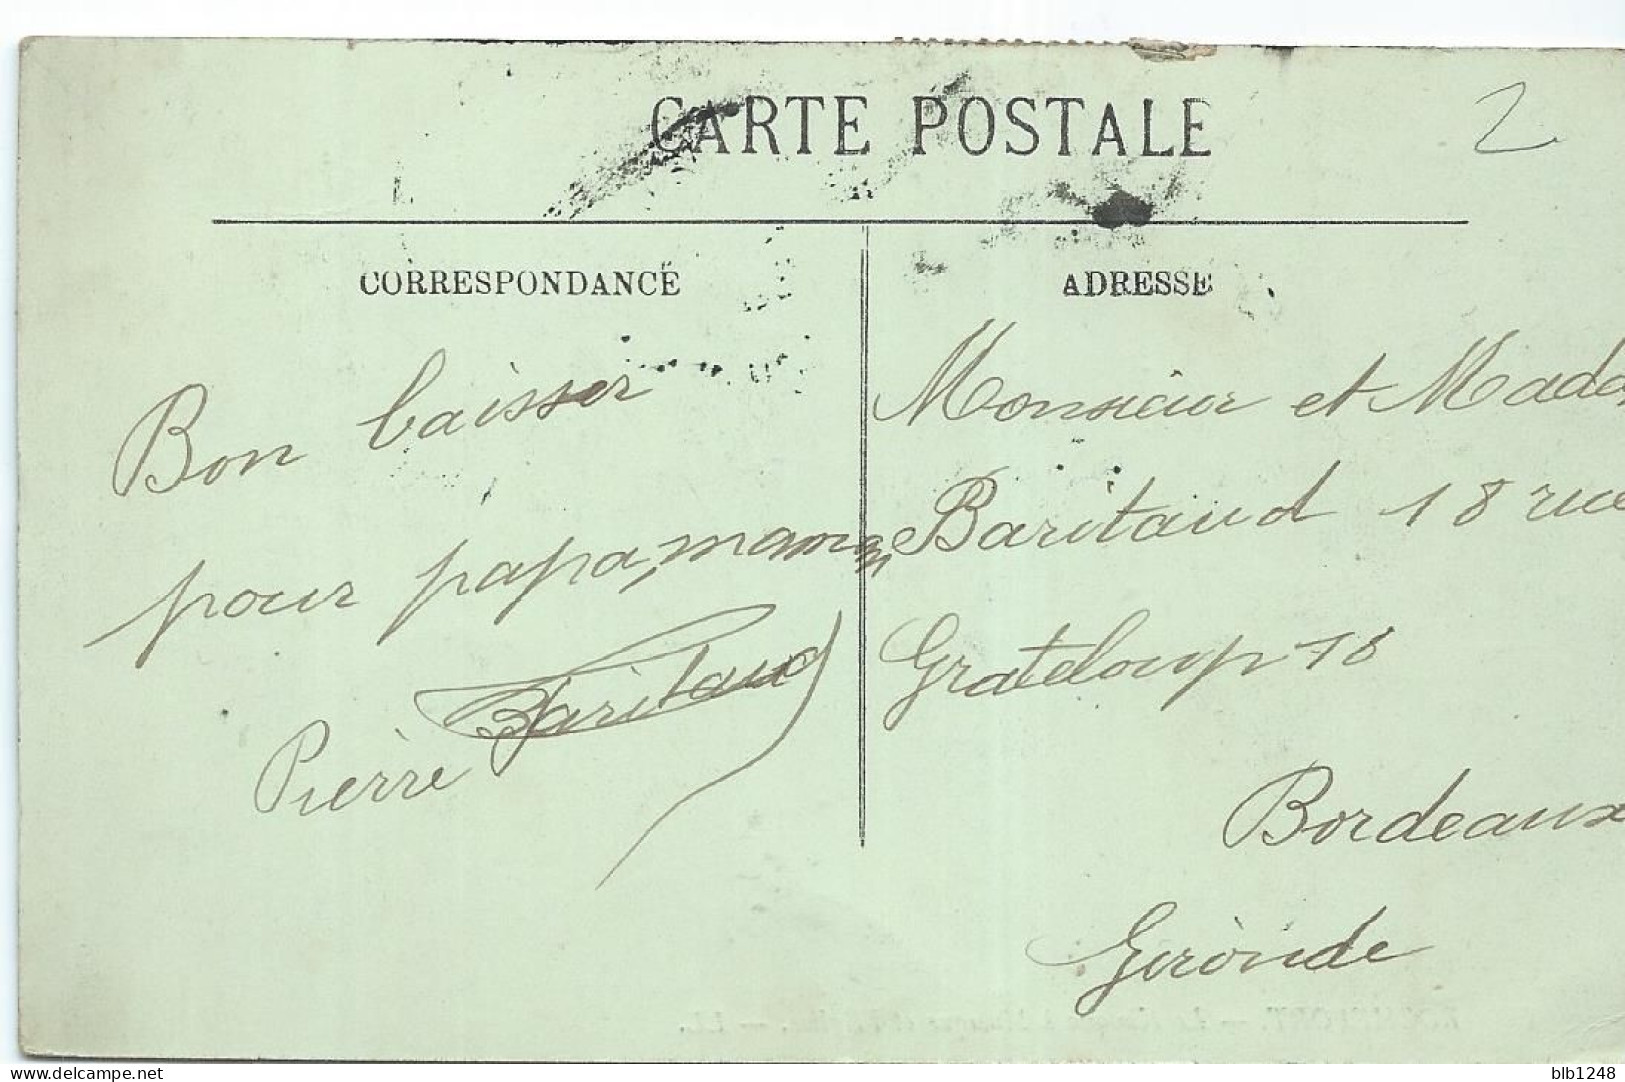 2
CARTE POSTALE
CORRESPONDANCE
Bon baisser
pour papa, maman
Pierre Baritaud
ADRESSE
Monsieur et Mada
Baritaud 18 rue
Grateloup 18
Bordeaux
Gironde
blb1248
www.delcampe.net